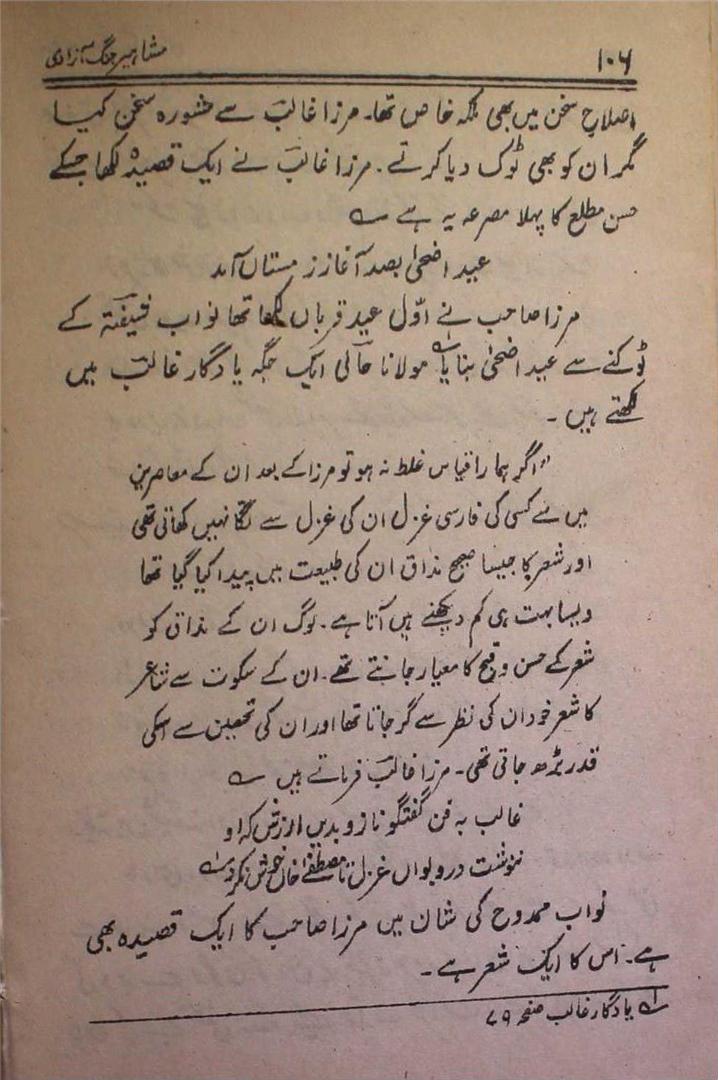 ۱۰۶
مشاہیر جنگ آزادی
اصلاح سخن میں بھی ملکہ خاص تھا۔ مرزا غالبؔ سے مشورہ سخن کیا
مگر ان کو بھی ٹوک دیا کرتے۔ مرزا غالبؔ نے ایک قصیدہ لکھا جسکے
حسن مطلع کا پہلا مصرعہ یہ ہے ؎
عید اضحیٰ بصد آغاز زمستاں آمد
مرزا صاحب نے اوّل عید قرباں لکھا تھا نواب شیفتہؔ کے
ٹوکنے سے عید اضحیٰ بنایا مولانا حالیؔ ایک جگہ یادگار غالبؔ میں
لکھتے ہیں ۔
"اگر ہمارا قیاس غلط نہ ہو تو مرزا کے بعد ان کے معاصرین
میں سے کسی کی فارسی غزل ان کی غزل سے لگا نہیں کھاتی تھی
اور شعر کا جیسا صحیح مذاق ان کی طبیعت میں پیدا کیا گیا تھا
ویسا بہت ہی کم دیکھنے میں آتا ہے۔ لوگ ان کے مذاق کو
شعر کے حسن و قبح کا معیار جانتے تھے۔ ان کے سکوت سے شاعر
کا شعر خود ان کی نظر سے گر جاتا تھا اور ان کی تحسین سے اسکی
قدر بڑھ جاتی تھی۔ مرزا غالبؔ فرماتے ہیں ؎
غالب بہ فن گفتگو نازد بدیں ارزش کہ او
ننوشت در دیواں غزل تا مصطفےٰ خاں خوش نکرد
نواب ممدوح کی شان میں مرزا صاحب کا ایک قصیدہ بھی
ہے۔ اس کا ایک شعر ہے ۔
لہ یادگار غالب صفحہ ۷۹